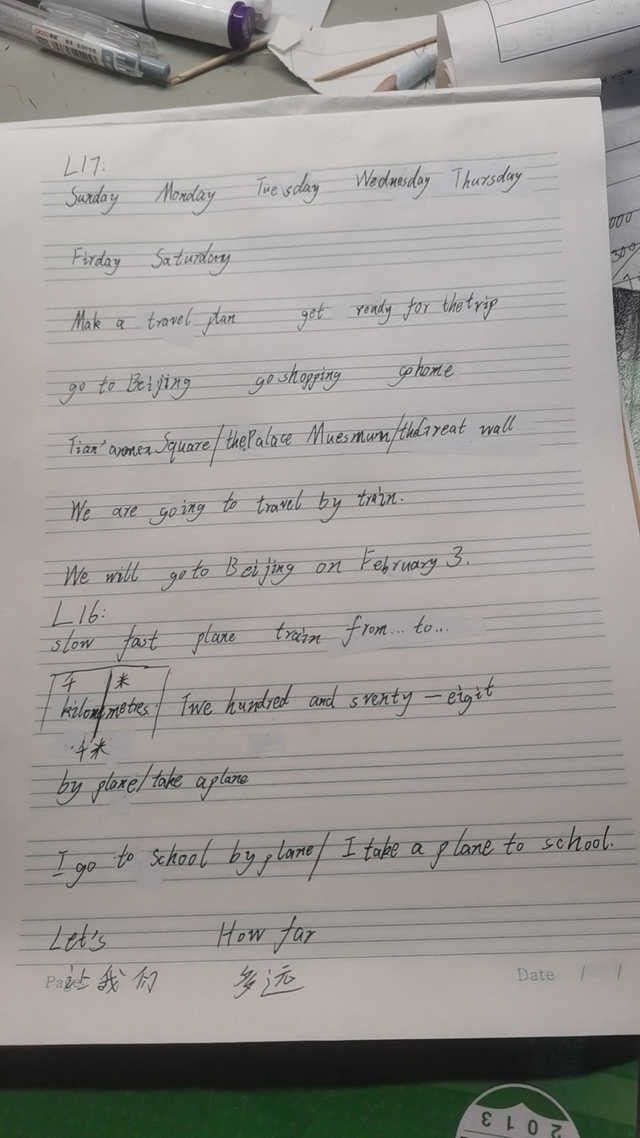 L17:
Sunday Monday Tuesday Wednesday Thursday
Firday Saturday
Make a travel plan get ready for the trip
go to Beijing go shopping gohome
Tian'anmen Square/the Palace Muesmum/the Great wall
We are going to travel by train.
We will go to Beijing on February 3.
L16:
slow fast plane train from... to...
千 米
kilometres. Twe hundred and sventy-eigit
千米
by plane/take a plane
I go to school by plane/ I take a plane to school.
Let's How far
让我们 多远
Page Date / /
2013